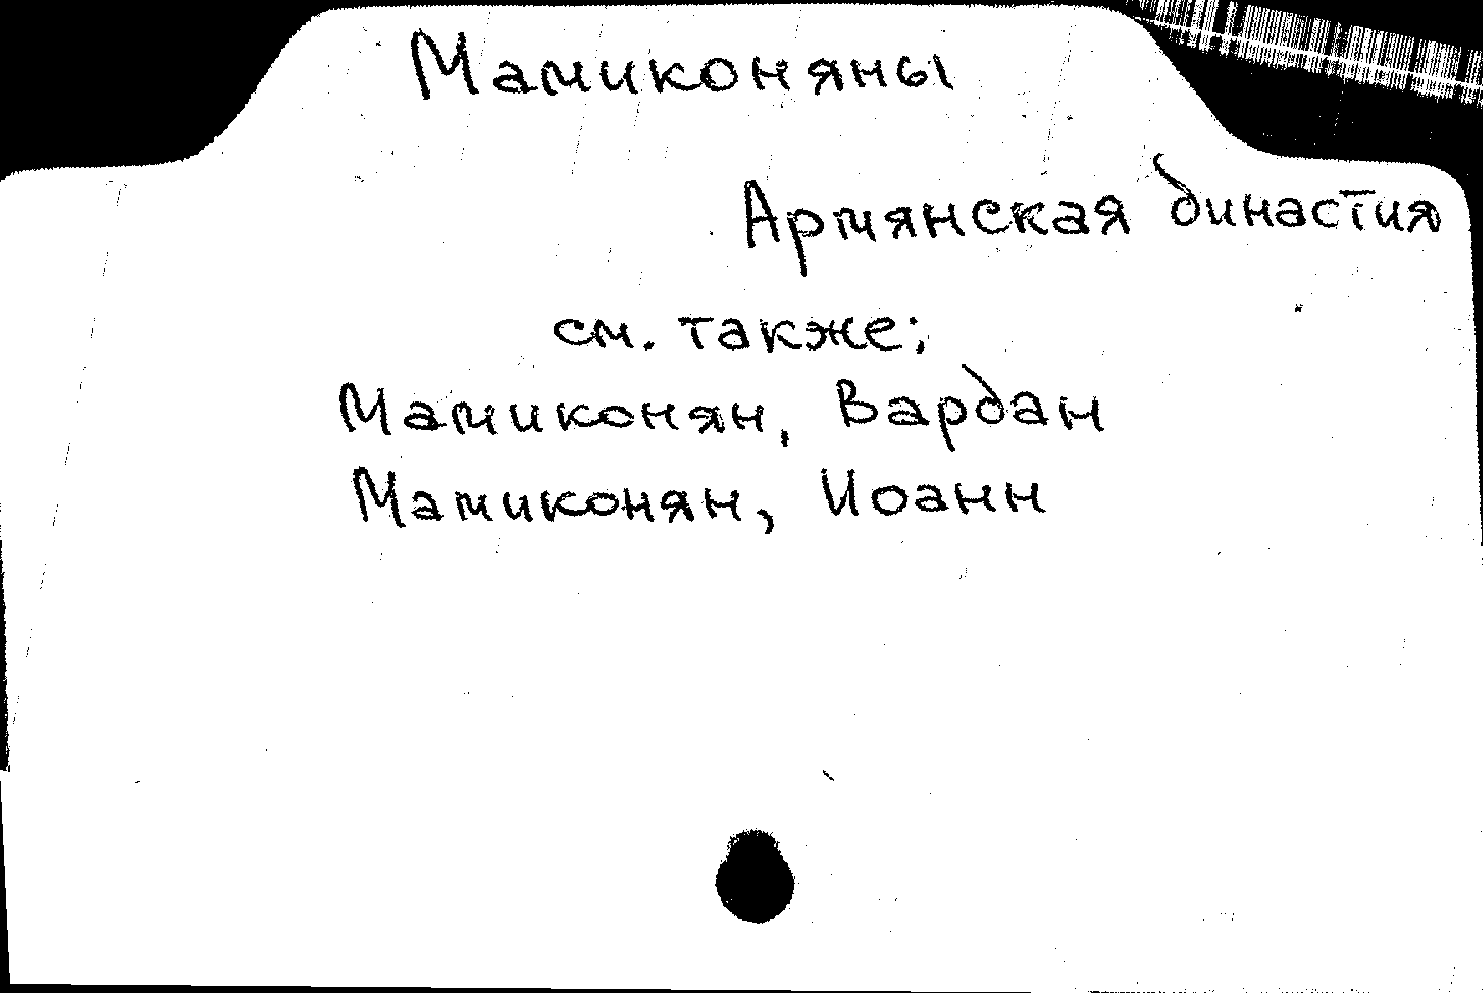 Мамиконяны
Армянская династия
см. также:
Мамиконян, Вардан
Мамиконян, Иоанн